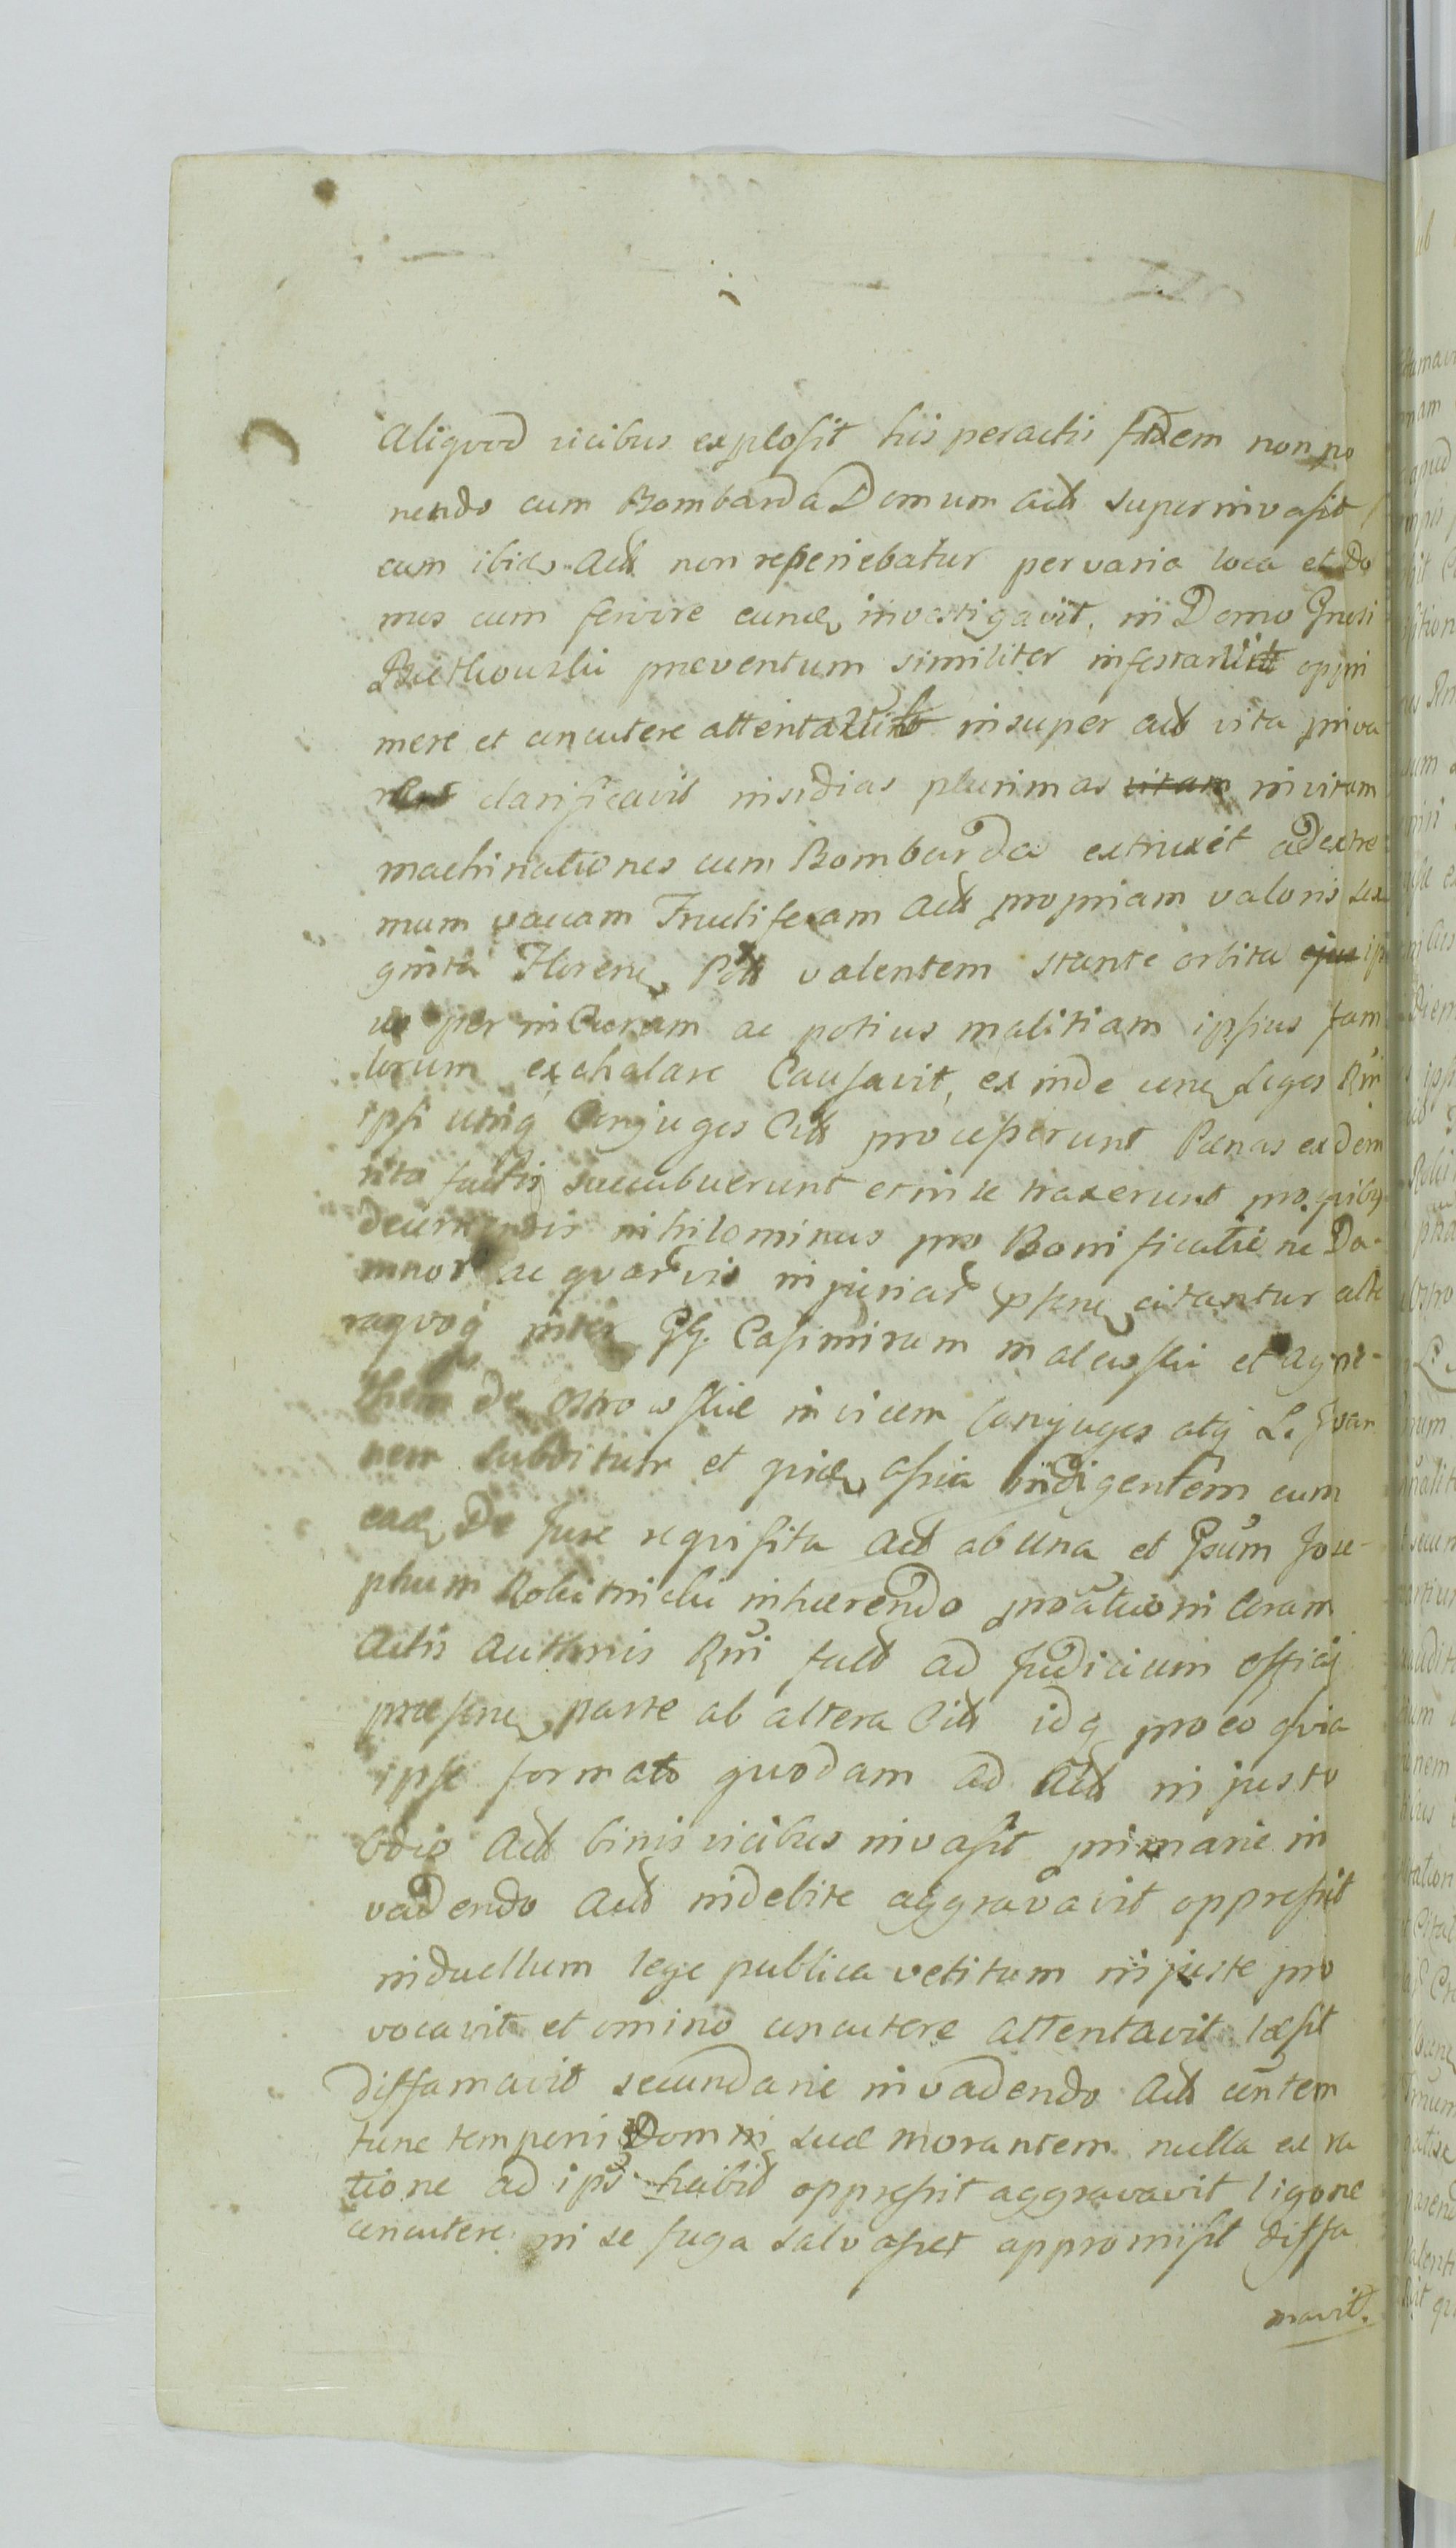 Aliquod vicibus explosit his peractis fidem non po
nendo cum Bombarda Domum Actt superinvasit
cum ibid. Actt non reperiebatur per varia loca et Do
mus cum fervore eund. investigavit, in Domo Gnrsi
preventum similiter infestavit oppri
mere et concutere attentavit insuper Actt vita priva
clarificavit insidias plurimas vitam in vitam
machinationes cum Bombarda extruxit ad extre
mum vaccam Fructiferam Actt propriam valoris sex
ginta Floren. Poll valentem stante orbita ejus ip
per incuriam ac potius malitiam ipsius fam
lorum exahalare Causavit, exinde cone Leges Rni
ipsi utriq Conjuges Citt processerunt Pænas exdem
rito factis succubuerunt et in se traxerunt pro quibus
decernendis nihilominus pro Bonificatione Da-
mnor ac quarvis injuriar pssene citantur alte
raquoq inter GG. Casimirum malewski et Agne-
them de Ostrowskie invicem Conjuges atq L. Joan
nem subditum et prid. assia indigentem cum
ead. De Jure requisita Actt ab una et Gsum Jose-
phum inhærendo proationi Coram
Actis Authnis Rni fact ad Judicium officij
præsene parte ab altera Citt idq pro eo quia
ipse formato quodam ad Actt injusto
odio Actt binis vicibus invasit primarie in
vadendo Actt indebite aggravavit oppressit
in duellum lege publica vetitum injuste pro
vocavit et omino concutere attentavit læsit
diffamavit secundarie invadendo Actt contem
tunc temporis Domi suæ morantem nulla ex ra
tione ad ips habit oppressit aggravavit ligone
concutere ni se fuga salvasset appromisit diffa
mavit.